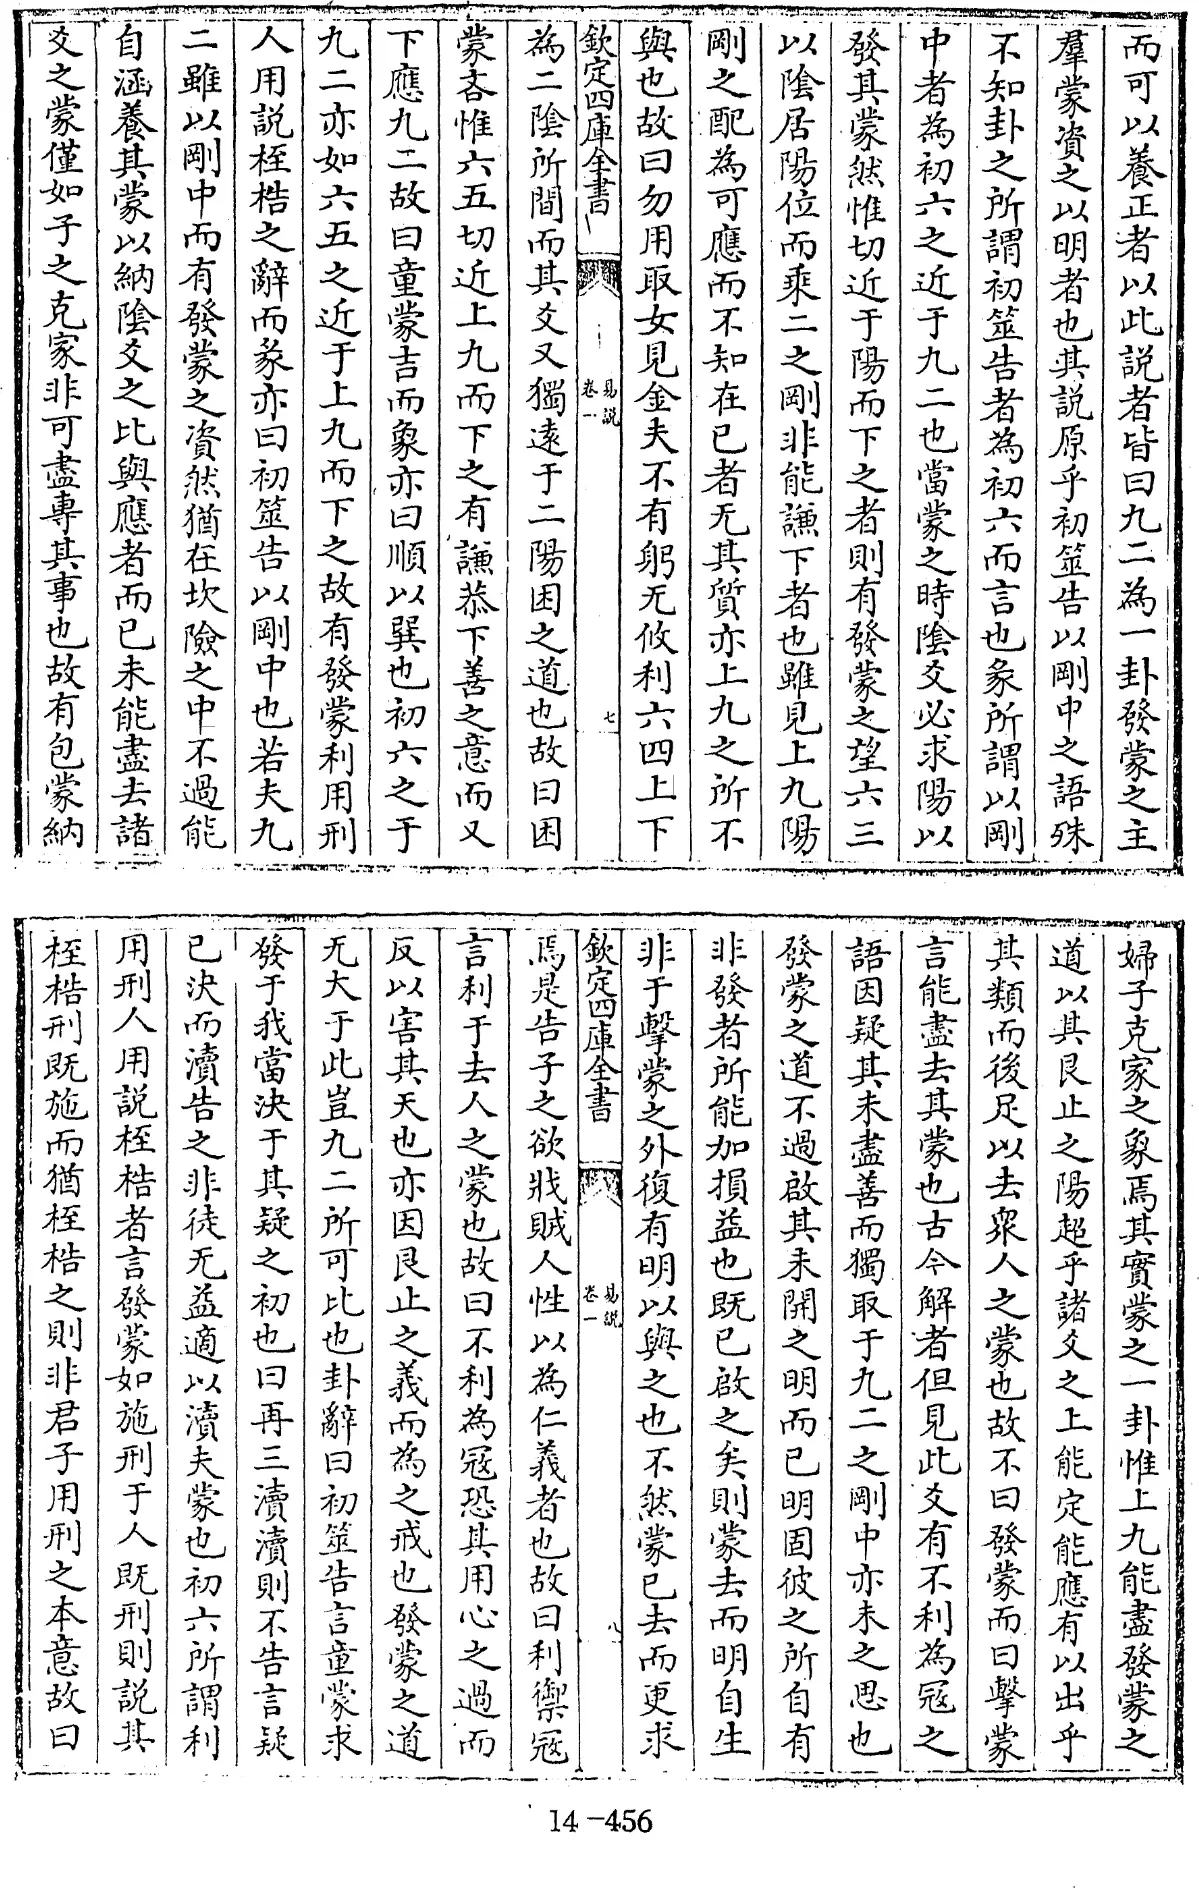 而可以養正者以此説者皆曰九二為一卦發蒙之主
羣蒙資之以明者也其説原乎初筮告以剛中之語殊
不知卦之所謂初筮告者為初六而言也彖所謂以剛
中者為初六之近于九二也當蒙之時陰爻必求陽以
發其蒙然惟切近于陽而下之者則有發蒙之望六三
以陰居陽位而乘二之剛非能謙下者也雖見上九陽
剛之配為可應而不知在已者无其質亦上九之所不
與也故曰勿用取女見金夫不有躬无攸利六四上下
欽定四庫全書
易説
卷一
七
為二陰所間而其爻又獨逺于二陽困之道也故曰困
蒙吝惟六五切近上九而下之有謙恭下善之意而又
下應九二故曰童蒙吉而象亦曰順以巽也初六之于
九二亦如六五之近于上九而下之故有發蒙利用刑
人用説桎梏之辭而彖亦曰初筮告以剛中也若夫九
二雖以剛中而有發蒙之資然猶在坎險之中不過能
自涵養其蒙以納陰爻之比與應者而已未能盡去諸
爻之蒙僅如子之克家非可盡專其事也故有包蒙納
婦子克家之象焉其實蒙之一卦惟上九能盡發蒙之
道以其艮止之陽超乎諸爻之上能定能應有以出乎
其類而後足以去衆人之蒙也故不曰發蒙而曰擊蒙
言能盡去其蒙也古今解者但見此爻有不利為冦之
語因疑其未盡善而獨取于九二之剛中亦未之思也
發蒙之道不過啟其未開之明而已明固彼之所自有
非發者所能加損益也既已啟之矣則蒙去而明自生
非于擊蒙之外復有明以與之也不然蒙已去而更求
欽定四庫全書
易説
卷一
八
焉是告子之欲戕賊人性以為仁義者也故曰利禦冦
言利于去人之蒙也故曰不利為冦恐其用心之過而
反以害其天也亦因艮止之義而為之戒也發蒙之道
无大于此豈九二所可比也卦辭曰初筮告言童蒙求
發于我當決于其疑之初也曰再三瀆瀆則不告言疑
已決而瀆告之非徒无益適以瀆夫蒙也初六所謂利
用刑人用説桎梏者言發蒙如施刑于人既刑則説其
桎梏刑既施而猶桎梏之則非君子用刑之本意故曰
14-456